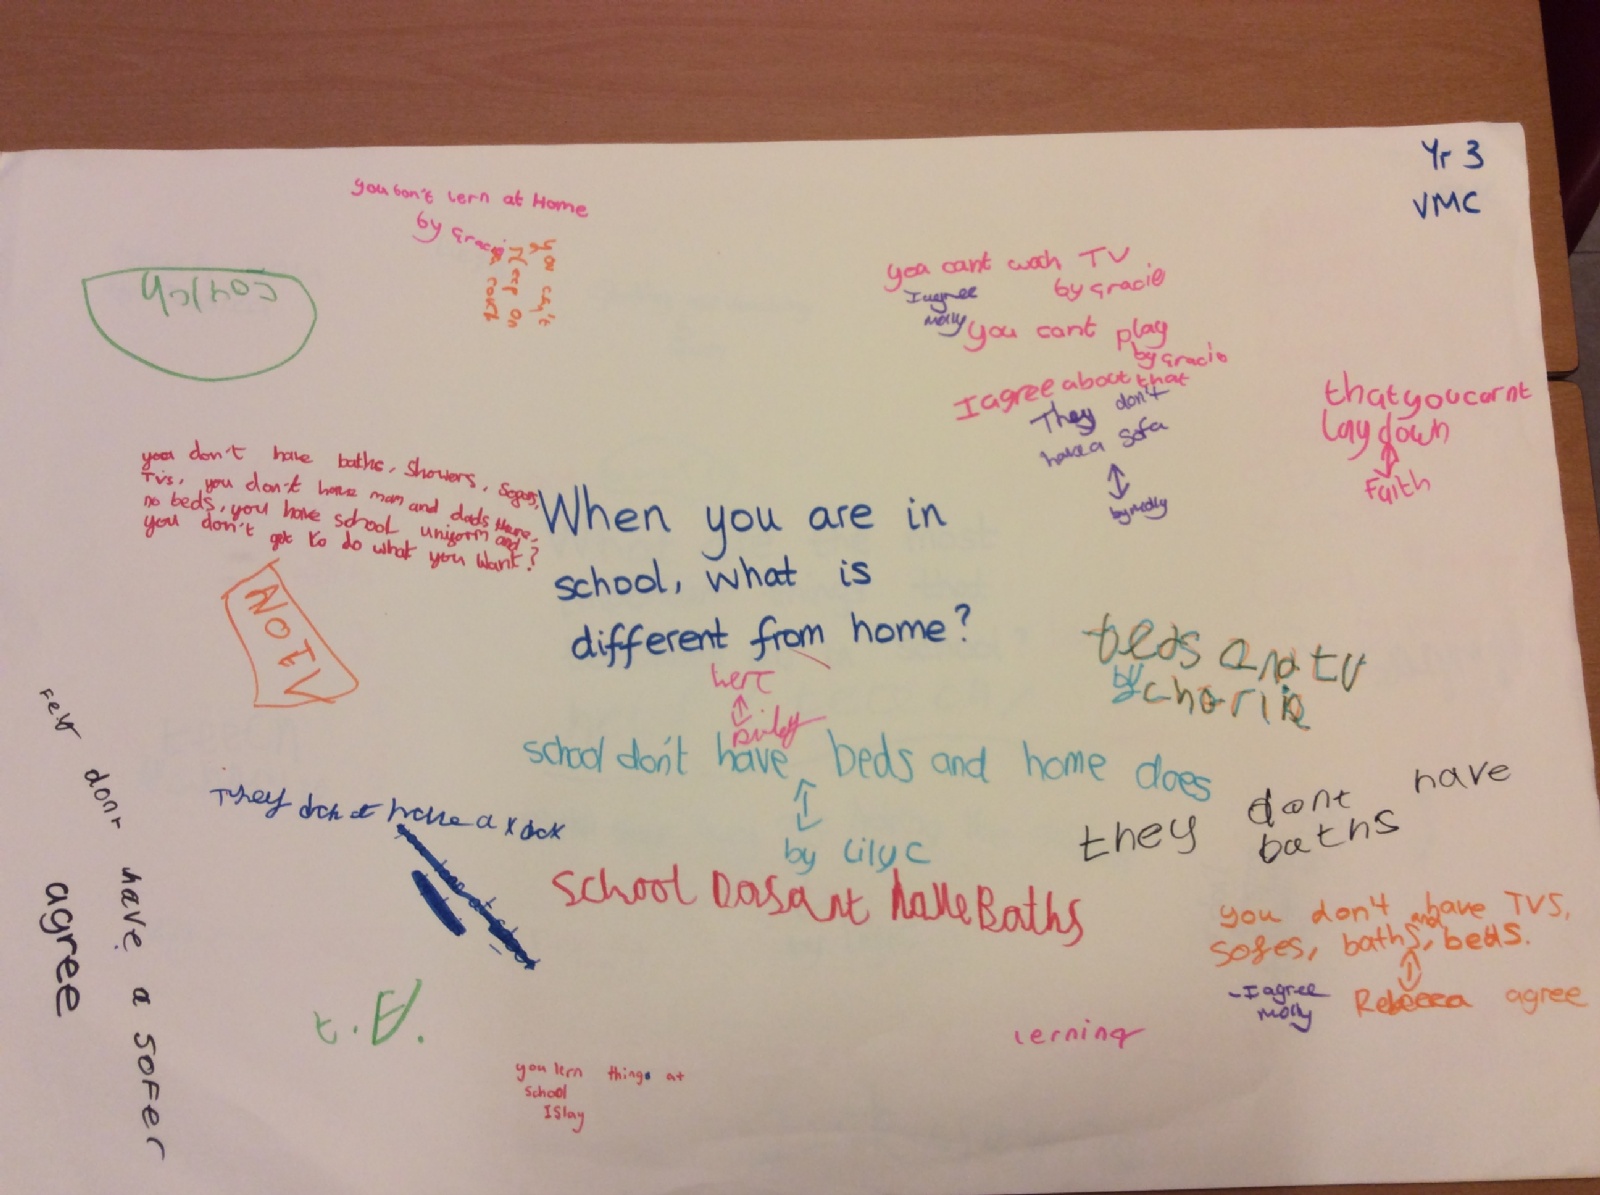 Yr 3
VMC
you don't lern at Home
by Gracie
you can't
sleep on
you cant woch TV
by Gracie
I agree
Molly
you cant play
by Gracie
I agree about that
They don't
have a sofa
by Molly
that you carnt
lay down
Faith
you don't have baths, Showers,
TVs, you don't have mom and dads Here,
no beds, you have school uniform and
you don't get to do what you want?
NO TV
When you are in
school, what is
different from home?
here
beds and tv
by charlie
school don't have beds and home does
by Lily C
They have a
they dont have
baths
School Dasant have Baths
you don't have TVS,
sofes, baths, and beds.
Rebecca agree
- I agree
Molly
lerning
you lern things at
school
ISlay
dont have a SOFer
agree